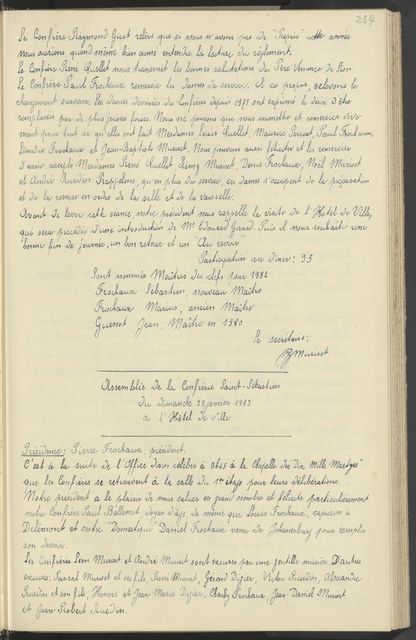 234
Le Confrère Raymond Gicot relève que si nous n'avons pas de "Repris" cette année
nous aurions quand même bien aimé entendre la lecture du règlement.
Le Confrère René Ruellet nous transmet les bonnes salutations du Père Venance de Sion.
Le Confrère Saint Frochaux remercie les Dames de service. A ce propos, relevons le
changement survenu. Les Dames dévouées des Confrères depuis 1971 ont exprimé le désir d'être
remplacées par de plus jeunes forces. Nous ne pouvons que nous soumettre et remercier vive
ment pour tout ce qu'elles ont fait Mesdames Louis Ruellet, Maurice Perrot, Paul Frochaux,
Frochaux et Jean-Baptiste Muriset. Nous pouvons aussi féliciter et les remercier
d'avoir accepté Mesdames René Ruellet, Rémy Muriset, Denis Frochaux, Noël Muriset
et André Ruedin. Rappelons, qu'en plus du service, ces dames s'occupent de la préparation
et de la remise en ordre de la salle et de la vaisselle.
Avant de lever cette séance, notre président nous rappelle la visite de l'Hôtel de Ville,
qui sera précédée d'une introduction de Mr. Edouard Girard. Puis il nous souhaite une
bonne fin de journée, un bon retour et un "Au revoir"
Participation au dîner : 93
Sont nommés Maîtres des clefs pour 1982
Frochaux Sébastien, nouveau Maître
Frochaux Marius, ancien Maître
Jean, Maître en 1980
Le secrétaire:
Muriset
Assemblée de la Confrérie Saint-Sébastien
du Dimanche 23 janvier 1983
à l'Hôtel de Ville
Présidence: Pierre Frochaux, président.
C'est à la suite de l'Office divin célébré à à la Chapelle des Dix Mille Martyrs
que les Confrères se retrouvent à la salle du 1er étage pour leurs délibérations.
Notre président a le plaisir de nous saluer en grand nombre et félicite particulièrement
notre Confrère Paul Bellenot, doyen d'âge, de même que Louis Frochaux, capucin à
Delémont et notre "Domestique" Daniel Frochaux venu de Johannesburg pour remplir
son devoir.
Les Confrères Léon Muriset et André Muriset sont excusés par une gentille missive. D'autres
excusés: Pascal Muriset et ses fils, Rémi Muriset, Gérard Digier, Victor Ruedin, Alexandre
Ruedin et son fils, Honoré et Jean-Marie Digier, Charly Frochaux, Jean-Daniel Muriset
et Jean-Robert Ruedin.